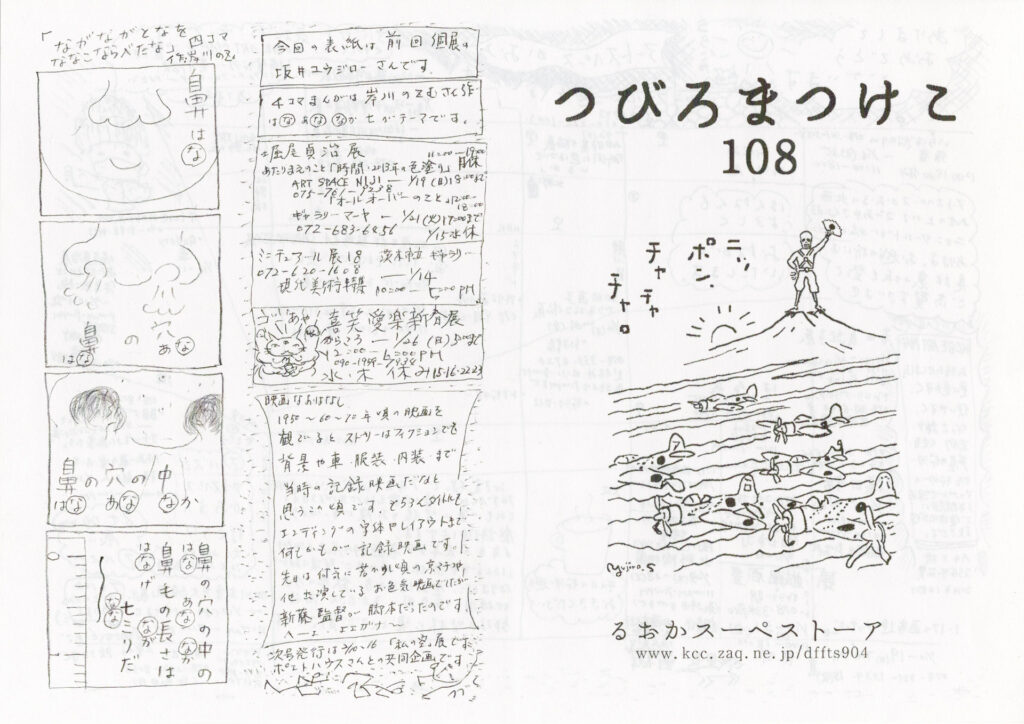 「ながながとなを
ななこならべたな」四コマ
作岸川のぞむ
鼻は
な
鼻
はな
の
穴
あな
鼻の穴の中
はな あな なか
鼻の穴の中の
はな あな なか
鼻毛の長さは
はなげ なが
七ミリだ
今回の表紙は前回個展の
坂井ユウジローさんです。
4コマまんがは岸川のぞむさん作
はな あな なか 七がテーマです。
堀尾貞治展 11:00―19:00
あたりまえのこと「時間・2013年の色塗り」月休
ART SPACE NIJI ― 1/19(日)18:00まで
075-761-9238
「オールオーバーのこと」12:00―18:00
ギャラリーマーヤ ― 1/21(火)17:00まで
072-683-6456 1/15水休
ミニチュアール展18 茨木市立ギャラリー
072-620-1608 ― 1/14
現代美術 10:00―5:00PM
喜笑愛楽新春展
からころ ― 1/26(日)5:00まで
12:00―6:00PM
水・木休み 15・16・22・23
映画なんはなし
1950～60～70年頃の映画を
観ていると、ストーリーはフィクションでも
背景や車・服装・内装まで
当時の記録映画だなと
思うこの頃です。そうそうタイトルに
エンディングの字体やレイアウトまで
何もかもが記録映画です。
先日は何気に若かりし頃の京マチ子や
他出演しているお色気映画でしたが
新藤監督が脚本だったのです。
へーエ、エエガナ
次号発行は2/10-16「私の空」展でお
ポエトハウスさんとの共同企画です。
つびろまつけこ
108
ニッ
ポン
チャ
チャ
チャ。
Yujiro.S
るおかスーペストーア
www.kcc.zaq.ne.jp/dffts904